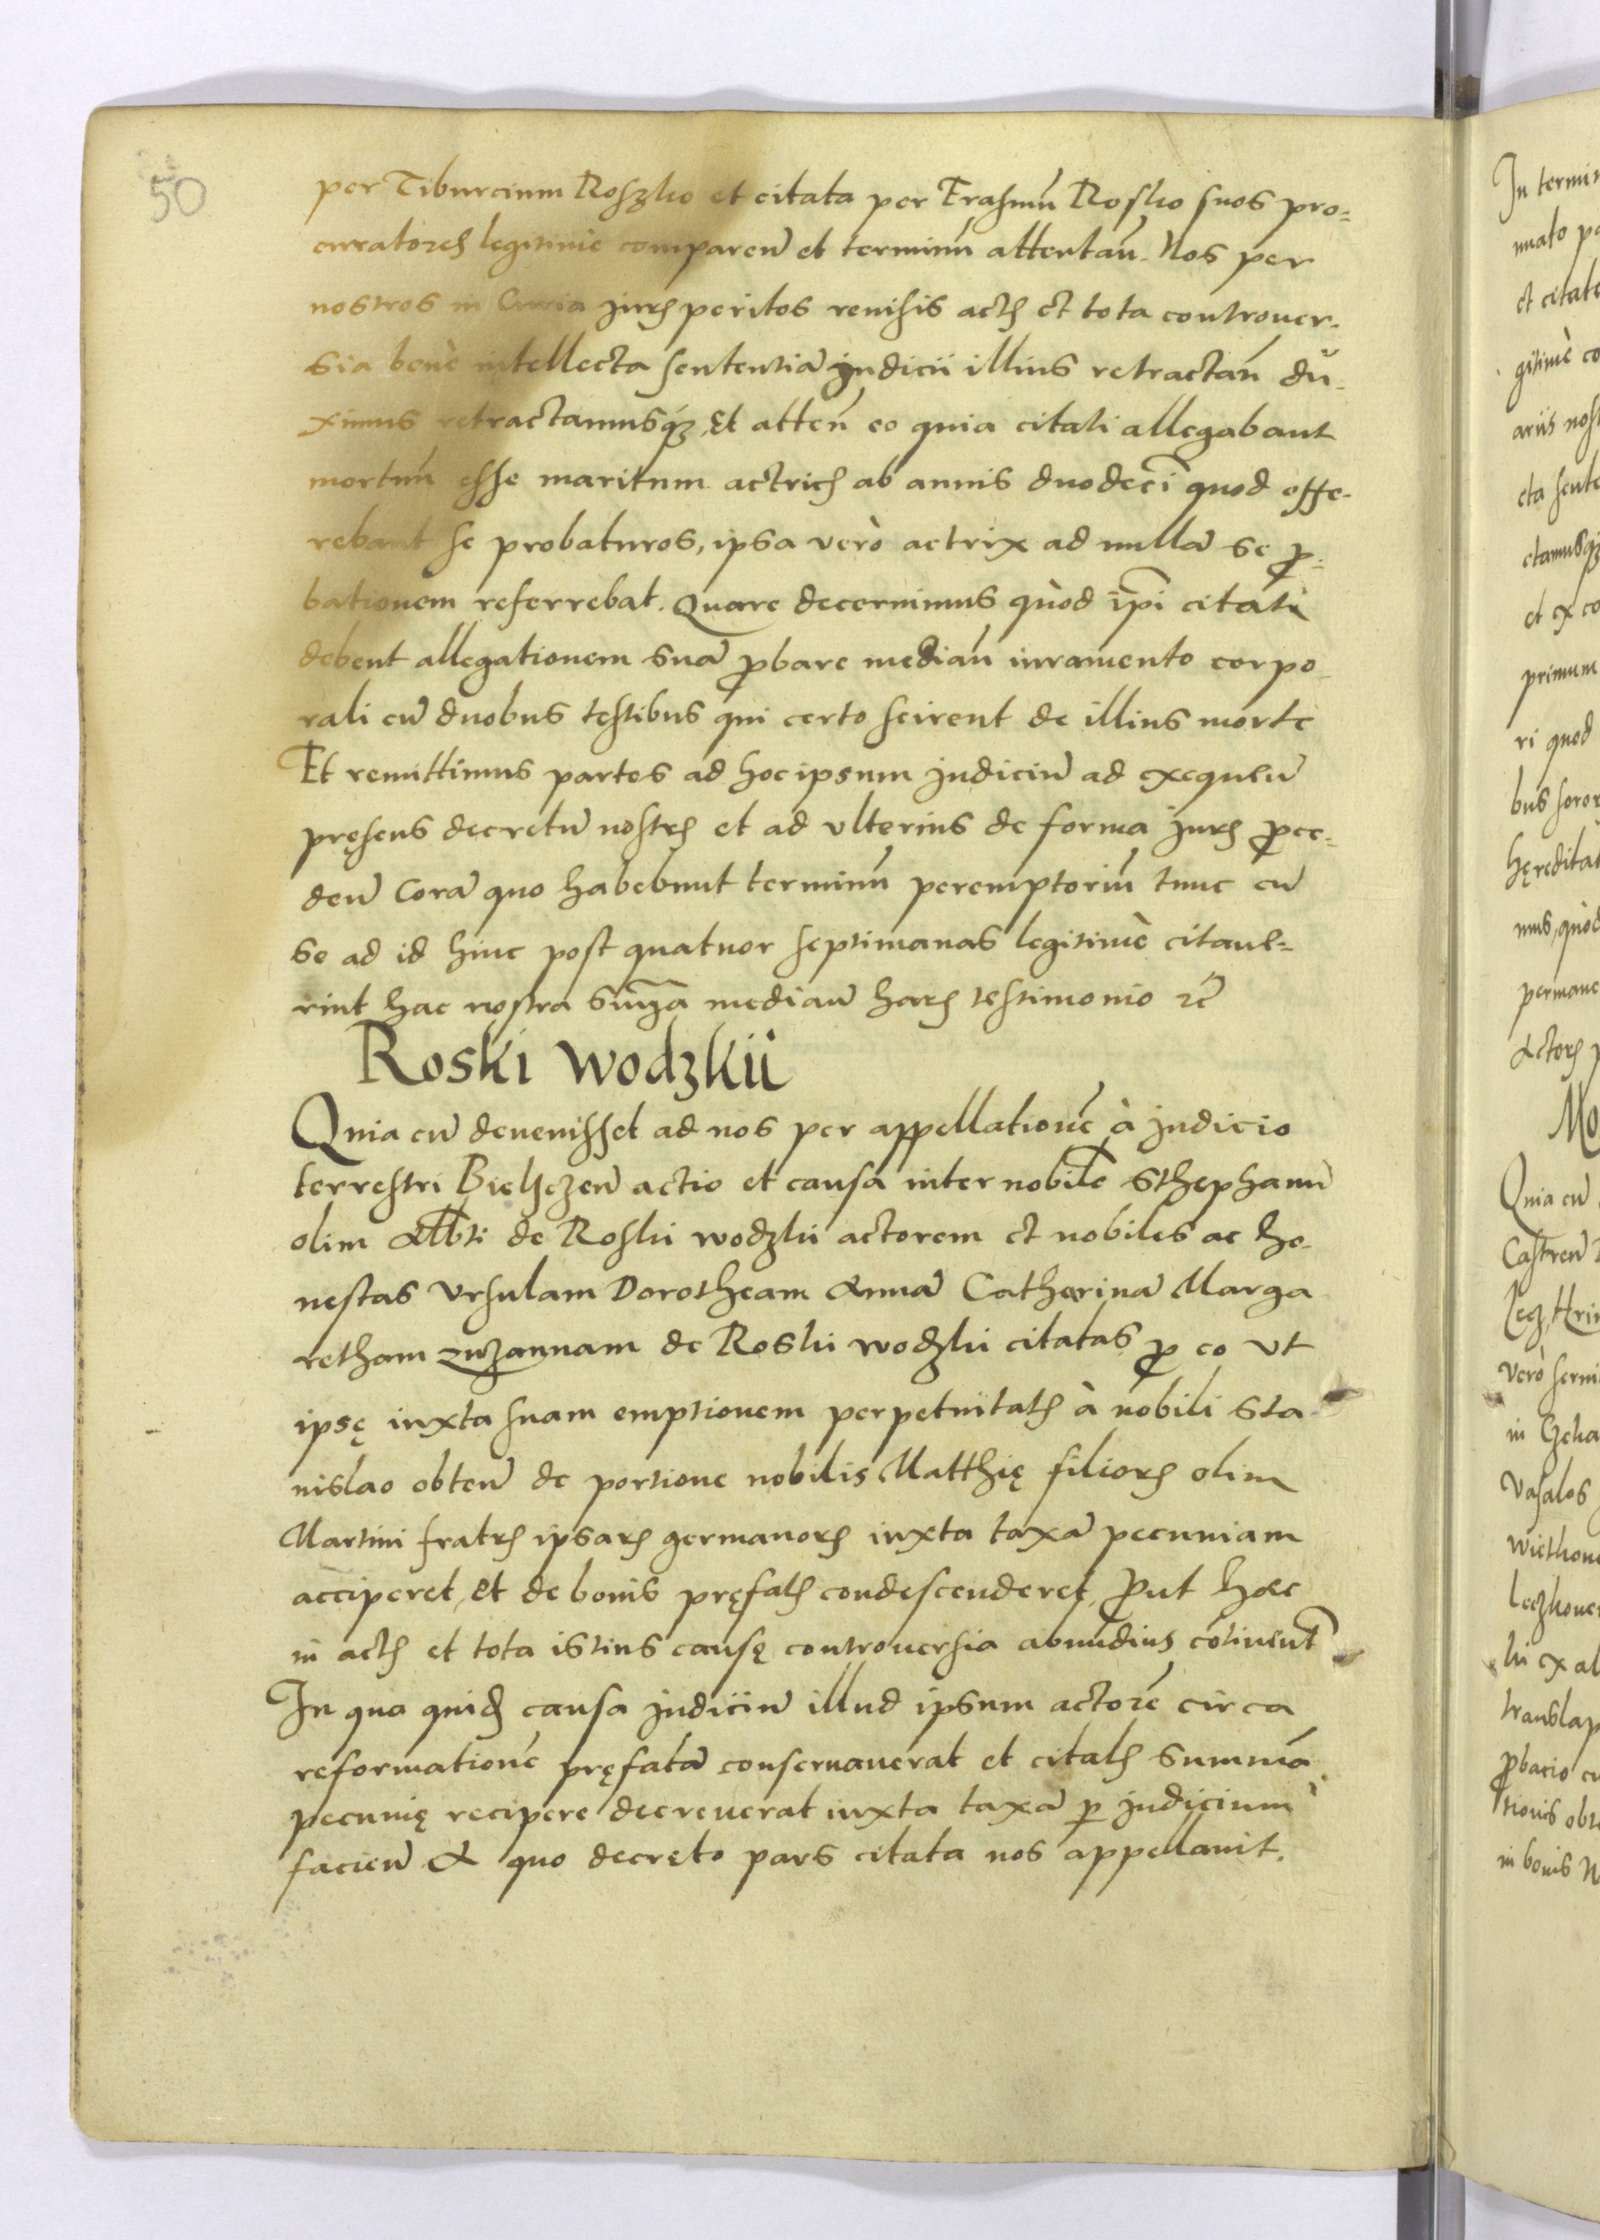 50
per Tiburcium Roszko et citata per Erasmũ Rosko suos pro=
curatores legitime comparen̄ et terminũ attentan̄. Nos per
nostros in Curia juris peritos reuisis actis et tota controuer-
sia benè intellecta sententiã judicii illius retractan̄ du-
ximus retractamusq́ꝫ, Et atten̄ eo quia citati allegabant
mortuũ esse maritum actricis ab annis duodecĩ quod offe-
rebant se probaturos, ipsa verò actrix ad nullã se ꝓ-
bationem referrebat. Quare decernimus quòd ip̃i citati
debent allegationem suã ꝓbare median̄ iuramento corpo-
rali cũ duobus testibus qui certo scirent de illius morte
Et remittimus partes ad hoc ipsum judiciũ ad exequen̄
pręsens decretũ nostrũ et ad vlterius de forma juris ꝓce-
den̄ Corã quo habebunt terminũ peremptoriũ tunc cũ
se ad id hinc post quatuor septimanas legitimè citaue=
rint hac nostra sñia median̄ harũ testimonio rc̃
Roski wodzkii
Quia cũ deuenisset ad nos per appellationẽ à judicio
terrestri Bielsczen̄ actio et causa inter nobilẽ Sthephanũ
olim Alb̃ti de Roski wodzki actorem et nobiles ac ho-
nestas Vrsulam Dorotheam Annã Catherinã Marga
retham zuzannam de Roski wodzki citatas ꝓ eo vt
ipsę iuxta suam emptionem perpetuitatis à nobili Sta-
nislao obten̄ de portione nobilis Matthię filiorũ olim
Martini fratris ipsarũ germanorũ iuxta taxã pecuniam
acciperet, Et de bonis pręfatis condescenderet, ꝓut hæc
in actis et tota istius causę controuersia abundius cõtinent̃
In qua quidẽ causa judiciũ illud ipsum actorẽ circa
reformationẽ pręfatã conseruauerat et citatis summã
pecunię recipere decreuerat iuxta taxã ꝑ judicium
facien̄ A quo decreto pars citata nos appellauit.